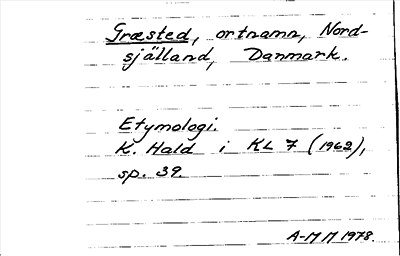 Græsted, ortnamn, Nord-
själland, Danmark.
Etymologi.
K. Hald i KL 7 (1962),
sp. 39.
A-M M 1978.